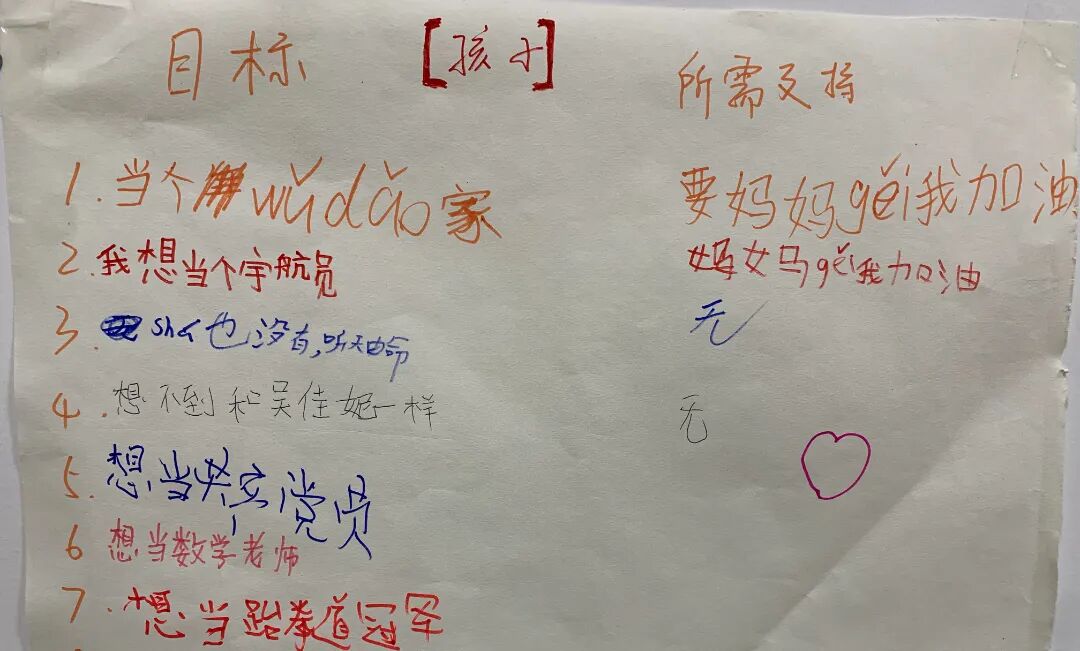 目标 [孩子] 所需支持
1. 当个wǔdǎo家 要妈妈gěi我加油
2. 我想当个宇航员 妈妈gěi我加油
3. 也没有,听天由命 无
4. 想不到和吴佳妮一样 无
5. 想当共产党员
6 想当数学老师
7. 想当跆拳道冠军